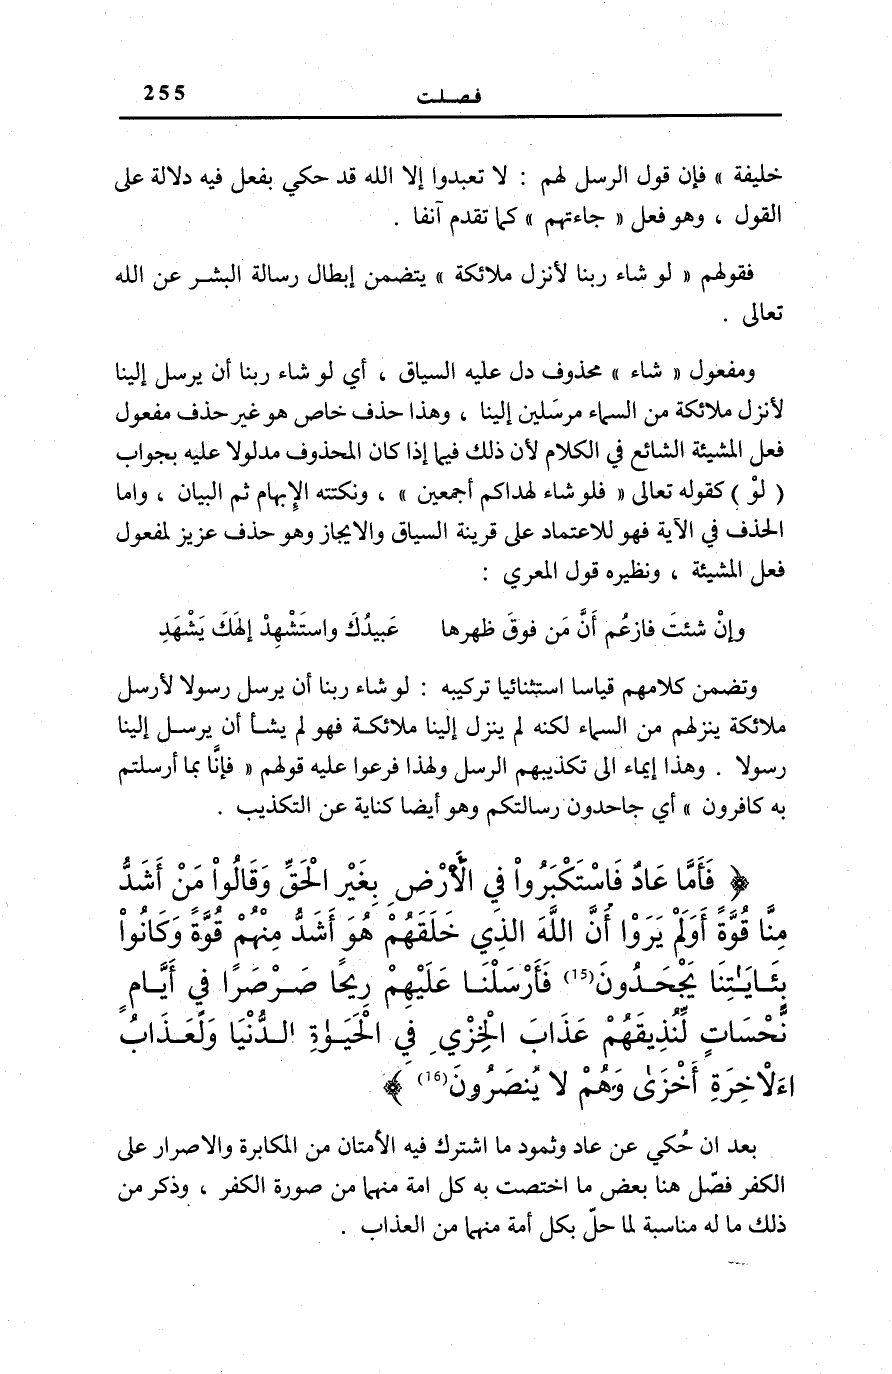 فصلت 255
خليفة » فإن قول الرسل لهم : لا تعبدوا إلا الله قد حكي بفعل فيه دلالة على
القول ، وهو فعل « جاءتهم » كما تقدم آنفا .
فقولهم « لو شاء ربنا لأنزل ملائكة » يتضمن إبطال رسالة البشر عن الله
تعالى .
ومفعول « شاء » محذوف دل عليه السياق ، أي لو شاء ربنا أن يرسل إلينا
لأنزل ملائكة من السماء مرسَلين إلينا ، وهذا حذف خاص هو غير حذف مفعول
فعل المشيئة الشائع في الكلام لأن ذلك فيما إذا كان المحذوف مدلولا عليه بجواب
( لوْ ) كقوله تعالى « فلو شاء لهداكم أجمعين » ، ونكتته الإبهام ثم البيان ، واما
الحذف في الآية فهو للاعتماد على قرينة السياق والايجاز وهو حذف عزيز لمفعول
فعل المشيئة ، ونظيره قول المعري :
وإنْ شئتَ فازعُم أَنَّ مَن فوقَ ظهرها عَبيدُكَ واستَشْهِدْ إلهَكَ يَشْهَدِ
وتضمن كلامهم قياسا استثنائيا تركيبه : لو شاء ربنا أن يرسل رسولا لأرسل
ملائكة ينزلهم من السماء لكنه لم ينزل إلينا ملائكة فهو لم يشأ أن يرسل إلينا
رسولا . وهذا إيماء الى تكذيبهم الرسل ولهذا فرعوا عليه قولهم « فإنَّا بما أرسلتم
به كافرون » أي جاحدون رسالتكم وهو أيضا كناية عن التكذيب .
﴿ فَأَمَّا عَادٌ فَاسْتَكْبَرُواْ فِي الَأرْضِ بِغَيْرِ الْحَقِّ وَقَالُواْ مَنْ أَشَدُّ
مِنَّا قُوَّةً أَوَلَمْ يَرَوْا أَنَّ اللَّهَ الذِي خَلَقَهُمْ هُوَ أَشَدُّ مِنْهُمْ قُوَّةً وَكَانُواْ
بِـَٔايَـٰتِنَا يَجْحَدُونَ(15) فَأَرْسَلْنَا عَلَيْهِمْ رِيحًا صَرْصَرًا فِي أَيَّامٍ
نَّحْسَاتٍ لِّنُذِيقَهُمْ عَذَابَ الْخِزْيِ فِي الْحَيَـوٰةِ الدُّنْيَا وَلَعَذَابُ
اءَلْاخِرَةِ أَخْزَىٰ وَهُمْ لَا يُنصَرُونَ(16) ﴾
بعد ان حُكي عن عاد وثمود ما اشترك فيه الأمتان من المكابرة والاصرار على
الكفر فصّل هنا بعض ما اختصت به كل امة منهما من صورة الكفر ، وذكر من
ذلك ما له مناسبة لما حلّ بكل أمة منهما من العذاب .